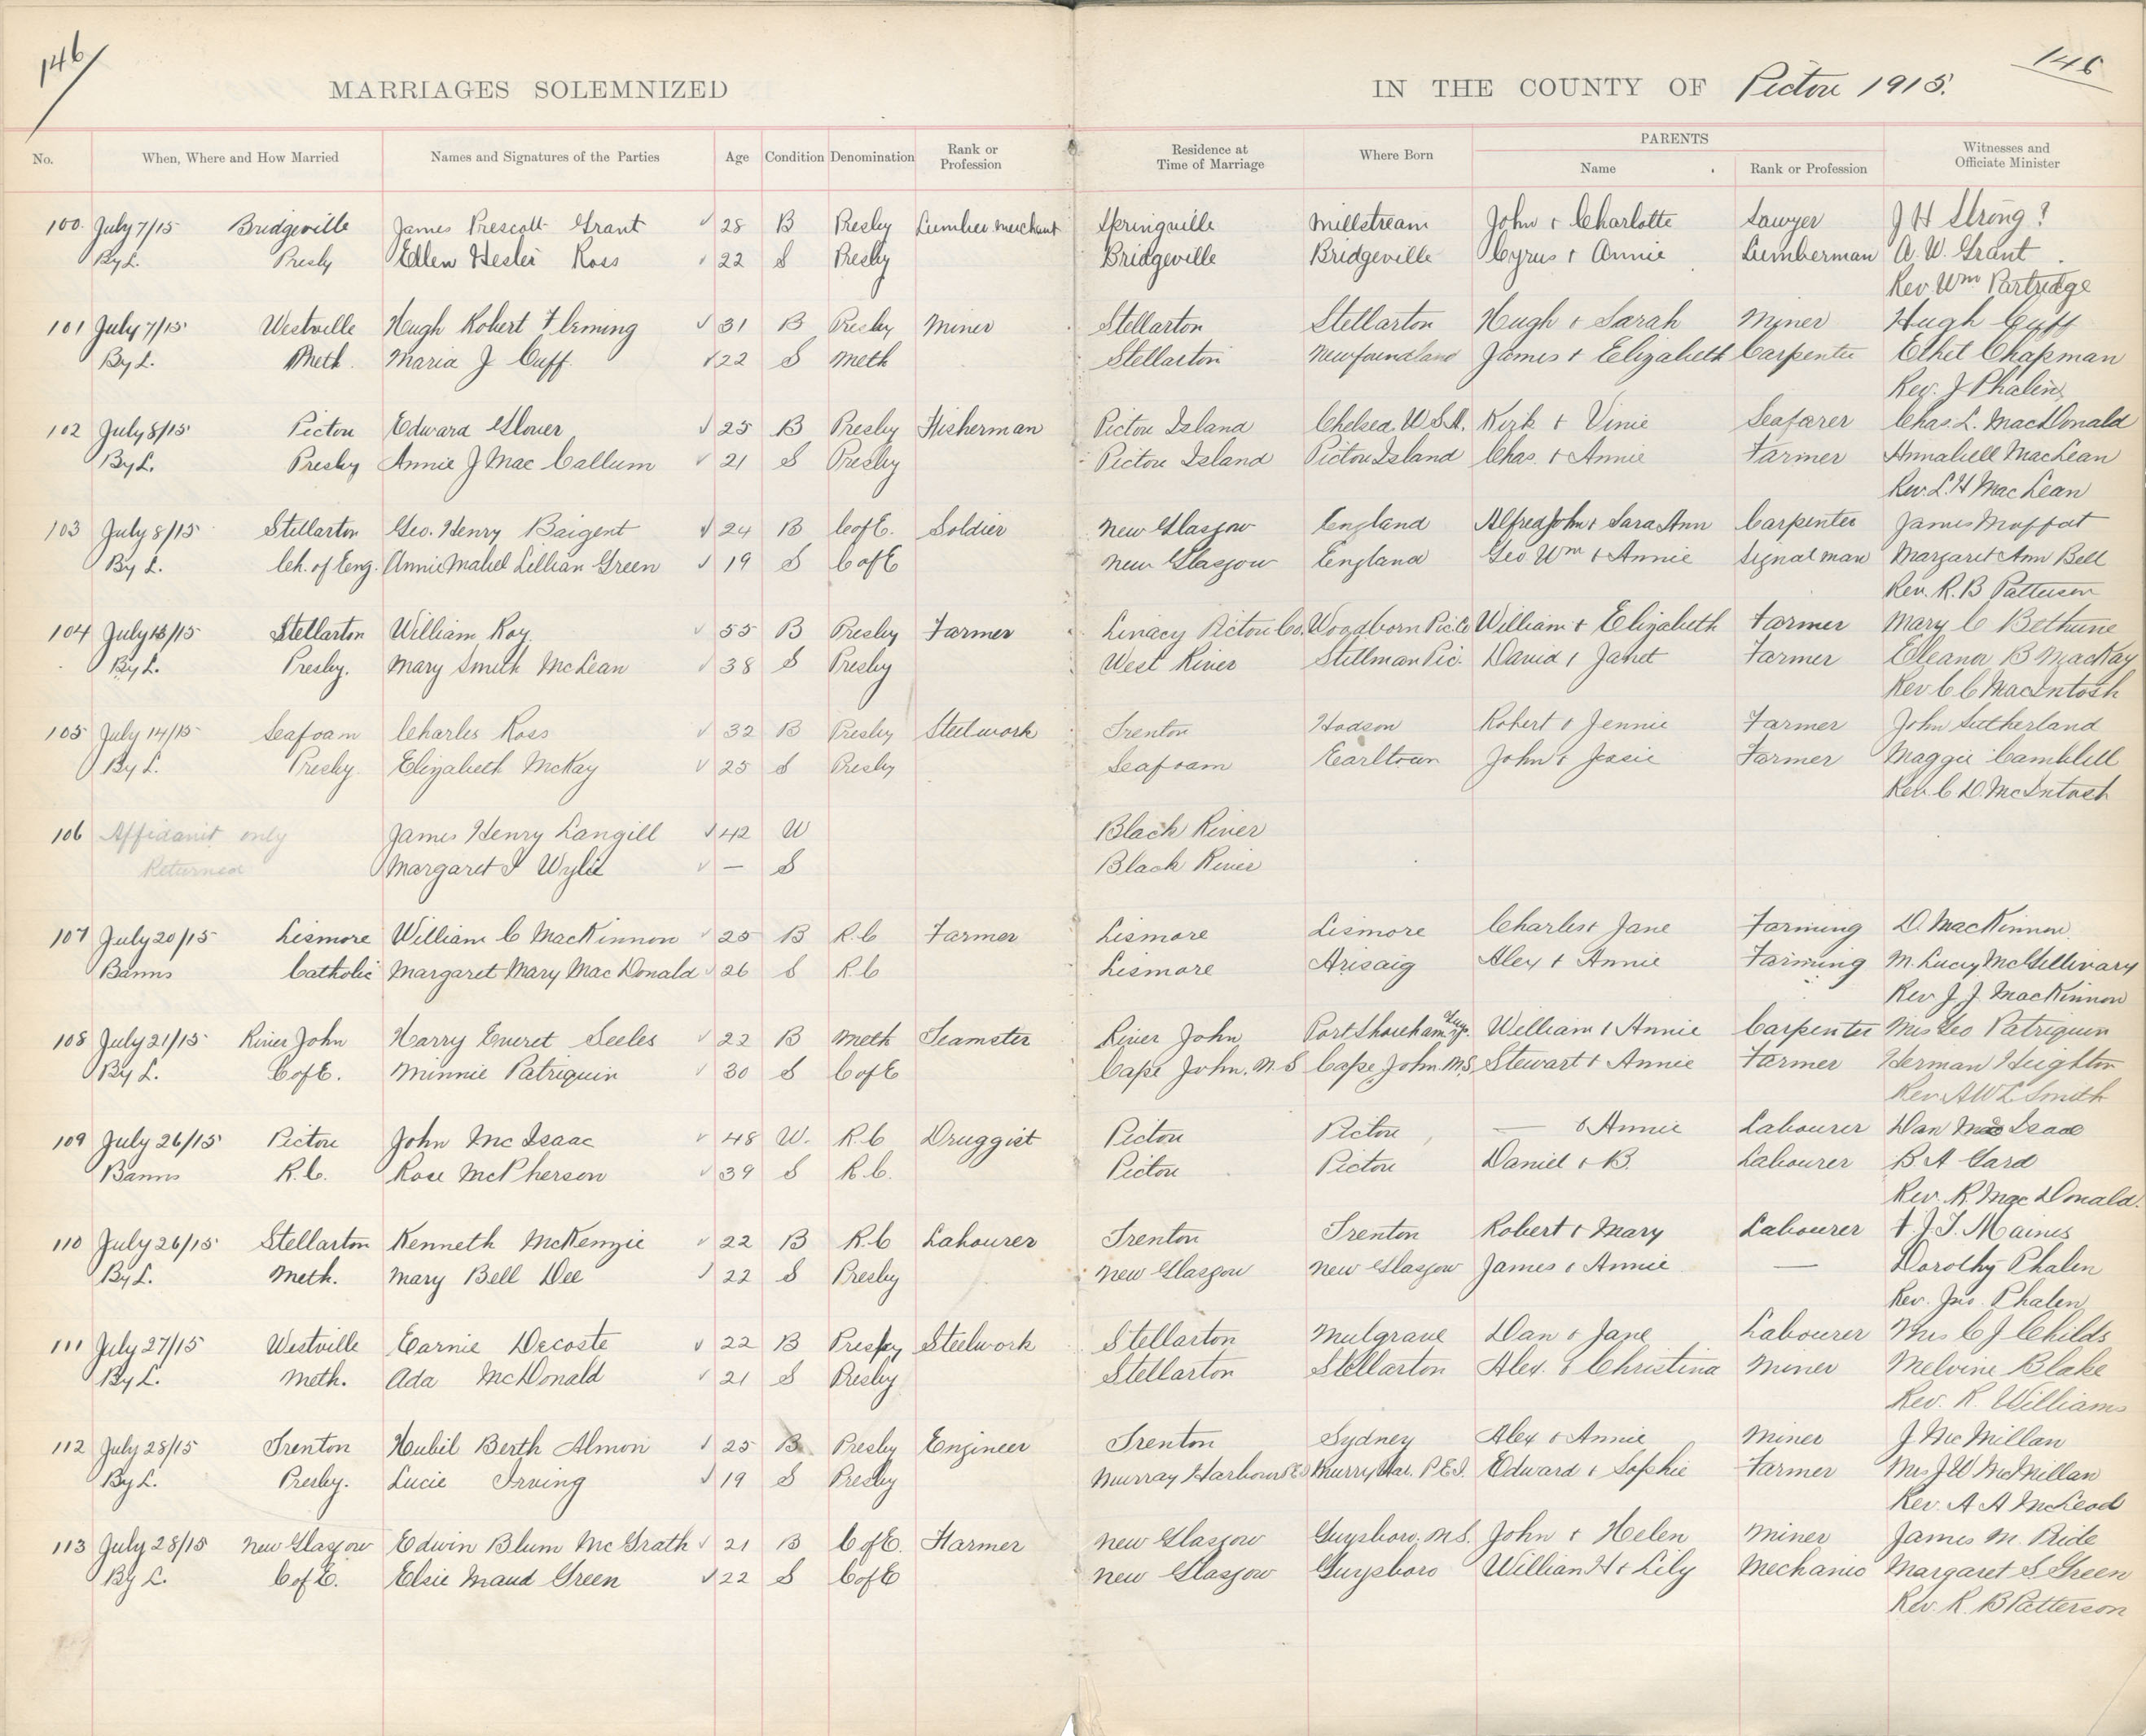 146
146
MARRIAGES SOLEMNIZED IN THE COUNTY OF Pictou 1915.
No. When, Where and How Married Names and Signatures of the Parties Age Condition Denomination Rank or Profession Residence at Time of Marriage Where Born PARENTS Name Rank or Profession Witnesses and Officiate Minister
100 July 7/15 Bridgeville James Prescott Grant 28 B Presby Lumber merchant Springville Millstream John + Charlotte Sawyer J H Strong ?
By L. Presby Ellen Hester Ross 22 S Presby Bridgeville Bridgeville Cyrus + Annie Lumberman A. W. Grant
Rev Wm Partridge
101 July 7/15 Westville Hugh Robert Fleming 31 B Presby Miner Stellarton Stellarton Hugh + Sarah Miner Hugh Cuff
By L. Meth. Maria J Cuff 22 S Meth Stellarton Newfoundland James + Elizabeth Carpenter Ethel Chapman
Rev. J Phalen
102 July 8/15 Pictou Edward Glover 25 B Presby Fisherman Pictou Island Chelsea U.S.A. Kirk + Vinie Seafarer Chas. L. MacDonald
By L. Presby Annie J MacCallum 21 S Presby Pictou Island Pictou Island Chas. + Annie Farmer Annabell MacLean
Rev. L. H MacLean
103 July 8/15 Stellarton Geo. Henry Baigent 24 B C of E. Soldier New Glasgow England Alfred John + Sara Ann Carpenter James Moffat
By L. Ch. of Eng. Annie Mabel Lillian Green 19 S C of E New Glasgow England Geo Wm + Annie Signalman Margaret Ann Bell
Rev. R. B Patterson
104 July 13/15 Stellarton William Roy 55 B Presby Farmer Linacy Pictou Co. Woodborn Pic. Co William + Elizabeth Farmer Mary C Bethune
By L. Presby. Mary Smith McLean 38 S Presby West River Stillman Pic. David + Janet Farmer Eleanor B MacKay
Rev C C MacIntosh
105 July 14/15 Seafoam Charles Ross 32 B Presby Steelwork Trenton Hodson Robert + Jennie Farmer John Sutherland
By L. Presby. Elizabeth McKay 25 S Presby Seafoam Earltown John + Jessie Farmer Maggie Cambell
Rev. C D. McIntosh
106 Affidavit only James Henry Langill 42 W Black River
Returned Margaret I Wylie — S Black River
107 July 20/15 Lismore William C MacKinnon 25 B R.C Farmer Lismore Lismore Charles + Jane Farming D. MacKinnon
Banns Catholic Margaret Mary MacDonald 26 S R.C Lismore Arisaig Alex + Annie Farming M. Lucy McGillivary
Rev J. J. MacKinnon
108 July 21/15 River John Harry Everet Seeles 22 B Meth Teamster River John Port Shoreham Guy. William + Annie Carpenter Mrs Geo Patriquin
By L. C of E. Minnie Patriquin 30 S C of E Cape John. N.S Cape John N.S. Stewart + Annie Farmer Herman Heighton
Rev. A W L Smith
109 July 26/15 Pictou John McIsaac 48 W. R.C Druggist Pictou Pictou — + Annie Labourer Dan MacIsaac
Banns R.C. Rose McPherson 39 S R.C. Pictou Pictou Daniel + B. Labourer B A Gard
Rev. R. MacDonald.
110 July 26/15 Stellarton Kenneth McKenzie 22 B R.C Labourer Trenton Trenton Robert + Mary Labourer J. T. Maines
By L. Meth. Mary Bell Dee 22 S Presby New Glasgow New Glasgow James + Annie — Dorothy Phalen
Rev. Jno. Phalen
111 July 27/15 Westville Earnie Decoste 22 B Presby Steelwork Stellarton Mulgrave Dan + Jane Labourer Mrs C J Childs
By L. Meth. Ada McDonald 21 S Presby Stellarton Stellarton Alex. + Christina Miner Melvine Blake
Rev. R. Williams
112 July 28/15 Trenton Hubil Berth Almon 25 B Presby Engineer Trenton Sydney Alex + Annie Miner J McMillan
By L. Presby. Lucie Irving 19 S Presby Murray Harbour Murry Har. P.E.I. Edward + Sophie Farmer Mrs J W McMillan
Rev. A A McLeod
113 July 28/15 New Glasgow Edwin Blum McGrath 21 B C of E. Farmer New Glasgow Guysboro. N.S. John + Helen Miner James M. Pride
By L. C of E. Elsie Maud Green 22 S C of E New Glasgow Guysboro William H + Lily Mechanic Margaret S. Green
Rev. R. B Patterson